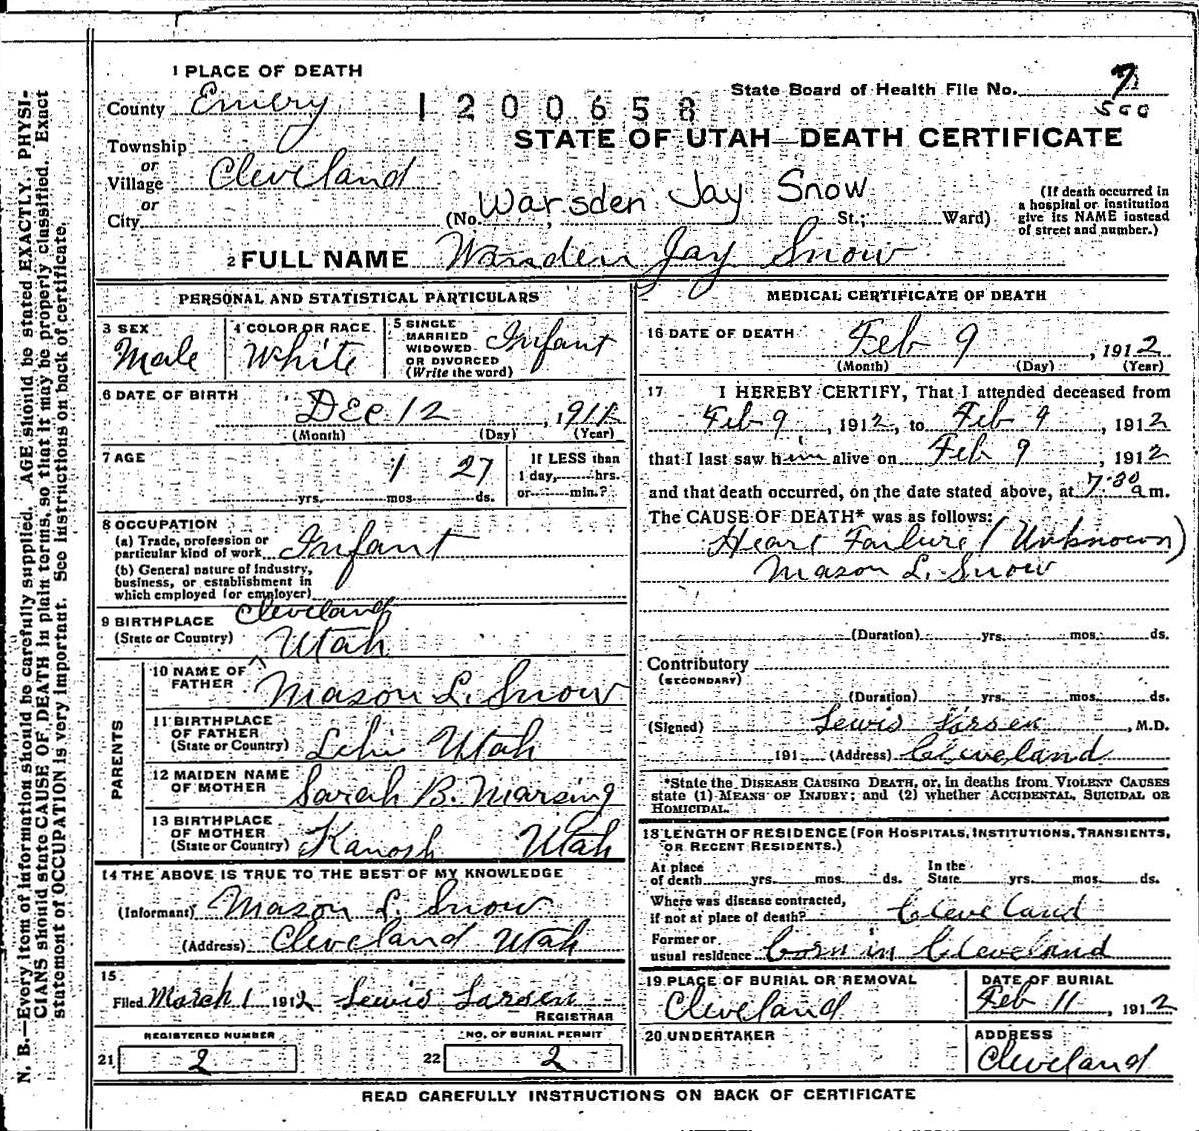 N. B.—Every item of information should be carefully supplied. AGE should be stated EXACTLY. PHYSI-
CIANS should state CAUSE OF DEATH in plain terms, so that it may be properly classified. Exact
statement of OCCUPATION is very important. See instructions on back of certificate.
1 PLACE OF DEATH
State Board of Health File No. 7
500
County Emery 1200658
STATE OF UTAH—DEATH CERTIFICATE
Township
or
Village Cleveland
or
City
(No. Warsden Jay Snow St.; Ward)
(If death occurred in
a hospital or institution
give its NAME instead
of street and number.)
2 FULL NAME Warsden Jay Snow
PERSONAL AND STATISTICAL PARTICULARS
3 SEX
Male
4 COLOR OR RACE
White
5 SINGLE
MARRIED
WIDOWED
OR DIVORCED
(Write the word)
Infant
6 DATE OF BIRTH
Dec 12, 1911
(Month) (Day) (Year)
7 AGE
yrs. 1 mos. 27 ds.
If LESS than
1 day, hrs.
or min.?
8 OCCUPATION
(a) Trade, profession or
particular kind of work Infant
(b) General nature of industry,
business, or establishment in
which employed (or employer)
9 BIRTHPLACE
(State or Country)
Cleveland
Utah
PARENTS
10 NAME OF
FATHER Mason L. Snow
11 BIRTHPLACE
OF FATHER
(State or Country) Lehi Utah
12 MAIDEN NAME
OF MOTHER Sarah B. Marsing
13 BIRTHPLACE
OF MOTHER
(State or Country) Kanosh Utah
14 THE ABOVE IS TRUE TO THE BEST OF MY KNOWLEDGE
(Informant) Mason L. Snow
(Address) Cleveland Utah
15
Filed March 1 1912 Lewis Larsen
REGISTRAR
REGISTERED NUMBER
21 2
NO. OF BURIAL PERMIT
22 2
MEDICAL CERTIFICATE OF DEATH
16 DATE OF DEATH
Feb 9, 1912
(Month) (Day) (Year)
17 I HEREBY CERTIFY, That I attended deceased from
Feb 9, 1912, to Feb 9, 1912
that I last saw him alive on Feb 9, 1912
and that death occurred, on the date stated above, at 7:30 a m.
The CAUSE OF DEATH* was as follows:
Heart Failure (Unknown)
Mason L. Snow
(Duration) yrs. mos. ds.
Contributory
(SECONDARY)
(Duration) yrs. mos. ds.
(Signed) Lewis Larsen, M.D.
191 (Address) Cleveland
*State the DISEASE CAUSING DEATH, or, in deaths from VIOLENT CAUSES
state (1) MEANS OF INJURY; and (2) whether ACCIDENTAL, SUICIDAL OR
HOMICIDAL.
18 LENGTH OF RESIDENCE (FOR HOSPITALS, INSTITUTIONS, TRANSIENTS,
OR RECENT RESIDENTS.)
At place
of death yrs. mos. ds.
In the
State yrs. mos. ds.
Where was disease contracted,
if not at place of death? Cleveland
Former or
usual residence born in Cleveland
19 PLACE OF BURIAL OR REMOVAL
Cleveland
DATE OF BURIAL
Feb 11, 1912
20 UNDERTAKER
ADDRESS
Cleveland
READ CAREFULLY INSTRUCTIONS ON BACK OF CERTIFICATE